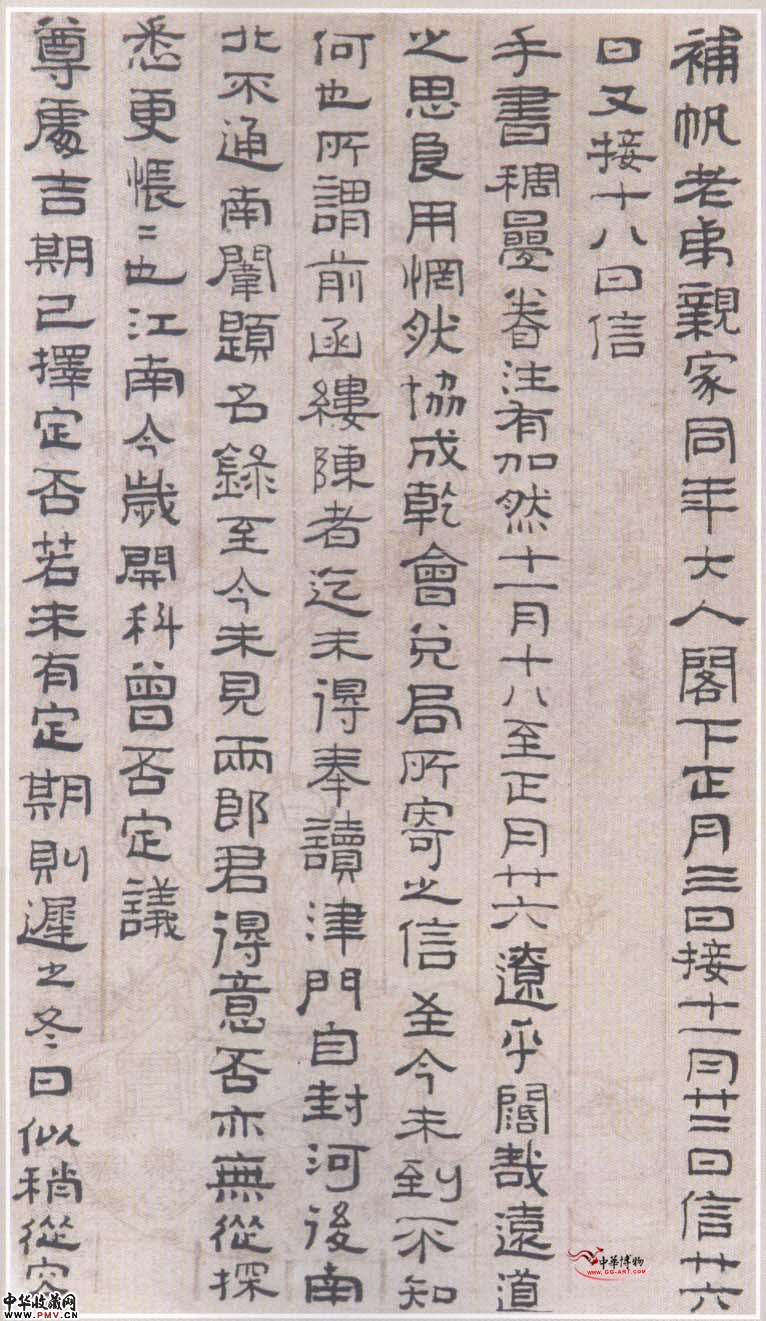 補帆老弟親家同年大人閣下正月三日接十一月廿三日信廿六
日又接十八日信
手書稠疊眷注有加然十一月十八至正月廿六遼乎闊哉遠道
之思良用惘然協成乾會兌局所寄之信至今未到不知
何也所謂前函縷陳者迄未得奉讀津門自封河後南
北不通南闈題名錄至今未見兩郎君得意否亦無從探
悉更悵〻也江南今歲開科曾否定議
尊處吉期已擇定否若未有定期則遲之冬日似稍從容
中華博物
WWW.GG-ART.COM
中华收藏网
WWW.PMV.CN